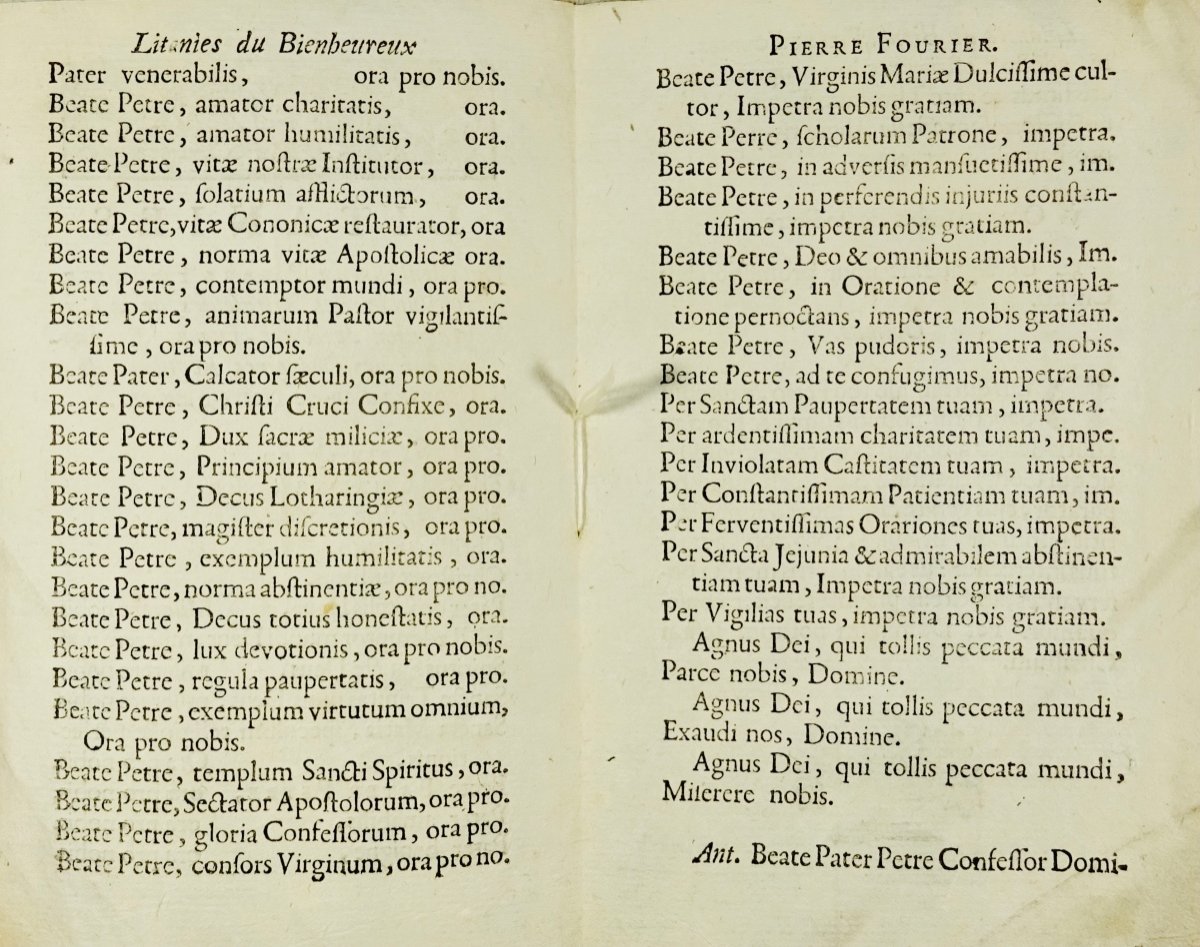 Litanies du Bienheureux
Pater venerabilis, ora pro nobis.
Beate Petre, amator charitatis, ora.
Beate Petre, amator humilitatis, ora.
Beate Petre, vitæ noſtræ Inſtitutor, ora.
Beate Petre, ſolatium afflictorum, ora.
Beate Petre, vitæ Cononicæ reſtaurator, ora
Beate Petre, norma vitæ Apoſtolicæ ora.
Beate Petre, contemptor mundi, ora pro.
Beate Petre, animarum Paſtor vigilantiſ-
ſime, ora pro nobis.
Beate Pater, Calcator ſæculi, ora pro nobis.
Beate Petre, Chriſti Cruci Confixe, ora.
Beate Petre, Dux ſacræ miliciæ, ora pro.
Beate Petre, Principium amator, ora pro.
Beate Petre, Decus Lotharingiæ, ora pro.
Beate Petre, magiſter diſcretionis, ora pro.
Beate Petre, exemplum humilitatis, ora.
Beate Petre, norma abſtinentiæ, ora pro no.
Beate Petre, Decus totius honeſtatis, ora.
Beate Petre, lux devotionis, ora pro nobis.
Beate Petre, regula paupertatis, ora pro.
Beate Petre, exemplum virtutum omnium,
Ora pro nobis.
Beate Petre, templum Sancti Spiritus, ora.
Beate Petre, Sectator Apoſtolorum, ora pro.
Beate Petre, gloria Confeſſorum, ora pro.
Beate Petre, conſors Virginum, ora pro no.
PIERRE FOURIER.
Beate Petre, Virginis Mariæ Dulciſſime cul-
tor, Impetra nobis gratiam.
Beate Perre, ſcholarum Patrone, impetra.
Beate Petre, in adverſis manſuetiſſime, im.
Beate Petre, in perferendis injuriis conſtan-
tiſſime, impetra nobis gratiam.
Beate Petre, Deo & omnibus amabilis, Im.
Beate Petre, in Oratione & contempla-
tione pernoctans, impetra nobis gratiam.
Beate Petre, Vas pudoris, impetra nobis.
Beate Petre, ad te confugimus, impetra no.
Per Sanctam Paupertatem tuam, impetra.
Per ardentiſſimam charitatem tuam, impe.
Per Inviolatam Caſtitatem tuam, impetra.
Per Conſtantiſſimam Patientiam tuam, im.
Per Ferventiſſimas Orariones tuas, impetra.
Per Sancta Jejunia & admirabilem abſtinen-
tiam tuam, Impetra nobis gratiam.
Per Vigilias tuas, impetra nobis gratiam.
Agnus Dei, qui tollis peccata mundi,
Parce nobis, Domine.
Agnus Dei, qui tollis peccata mundi,
Exaudi nos, Domine.
Agnus Dei, qui tollis peccata mundi,
Miſerere nobis.
Ant. Beate Pater Petre Confeſſor Domi-